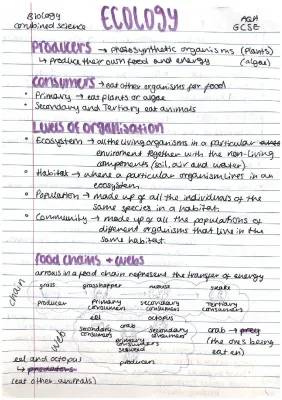 Biology
combined science
ECOLOGY
AQA
GCSE
Producers → photosynthetic organisms (plants)
↳ produce their own food and energy (algae)
Consumers → eat other organisms for food
• Primary → eat plants or algae
• Secondary and Tertiary eat animals
Levels of organisation
• Ecosystem → all the living organisms in a particular
enviroment together with the non-living
components (soil, air and water)
• Habitat → where a particular organism lives in an
ecosystem.
• Population → made up of all the individuals of the
same species in a habitat.
• Community → made up of all the populations of
different organisms that live in the
same habitat.
food chains + webs
arrows in a food chain represent the transfer of energy
chain
grass grasshopper mouse snake
producer primary consumers secondary consumers Tertiary consumers
web
eel octopus
secondary consumers crab secondary consumers crab → prey
primary consumers (the ones being
seaweed eaten)
eel and octopus producers
↳ predators
(eat other animals)